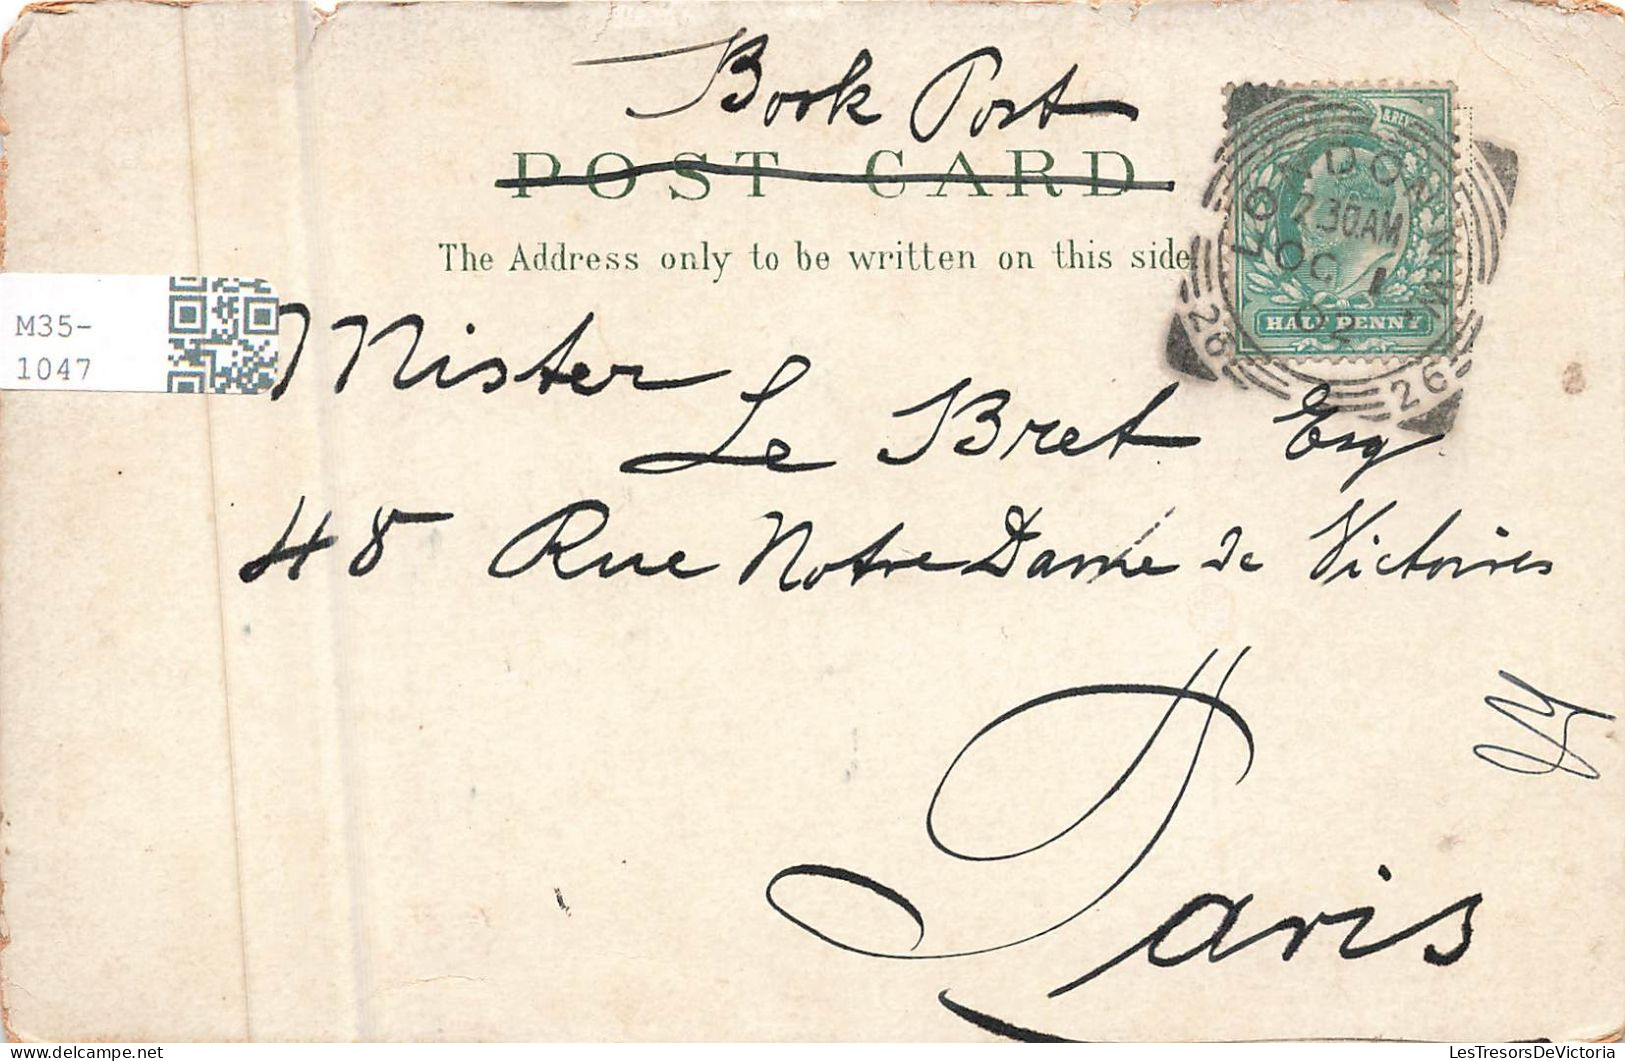 Book Post
POST CARD
The Address only to be written on this side
& REV
LONDON. N.W.
2.30AM
OC 1
02
26 26
HALF PENNY
M35-
1047
Mister
Le Bret Esq
48 Rue Notre Dame de Victoires
Paris
LesTresorsDeVictoria
www.delcampe.net